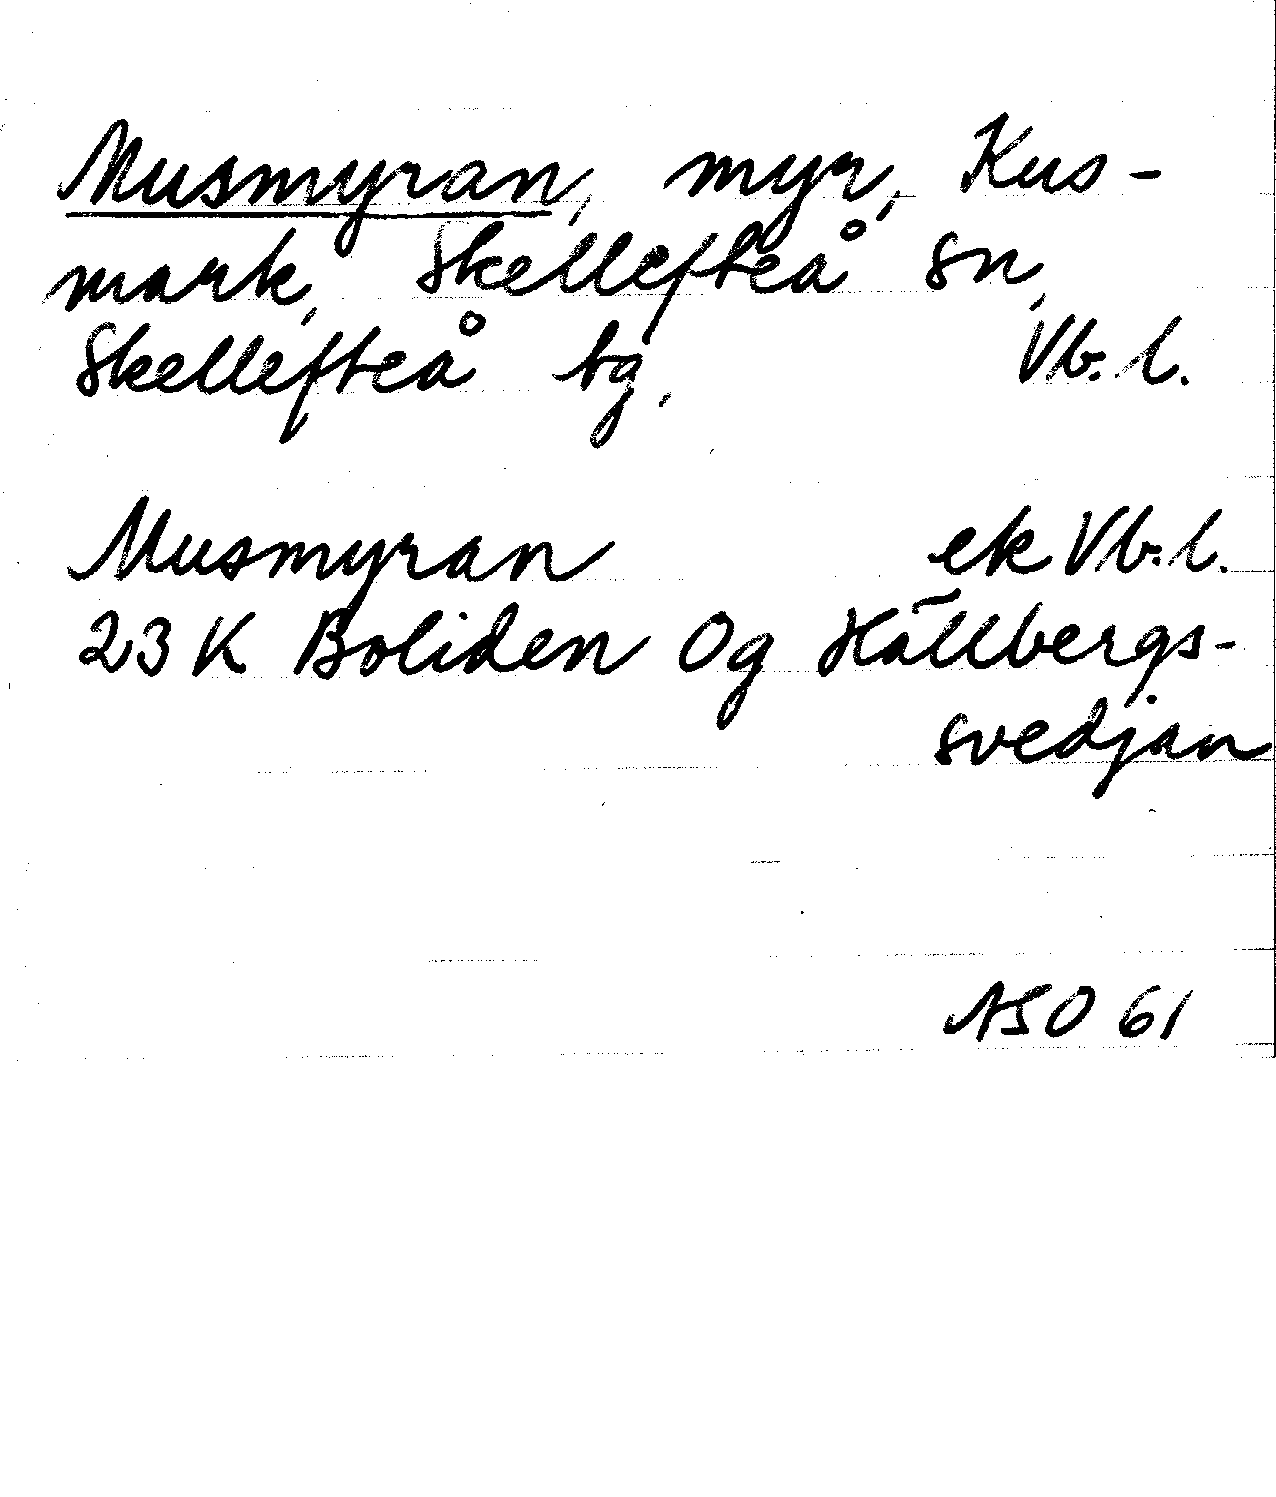 Musmyran, myr, Kus-
mark, Skellefteå sn,
Skellefteå tg, Vb. l.
Musmyran ek Vb. l.
23 K Boliden 0g Hällbergs-
svedjan
ASO 61